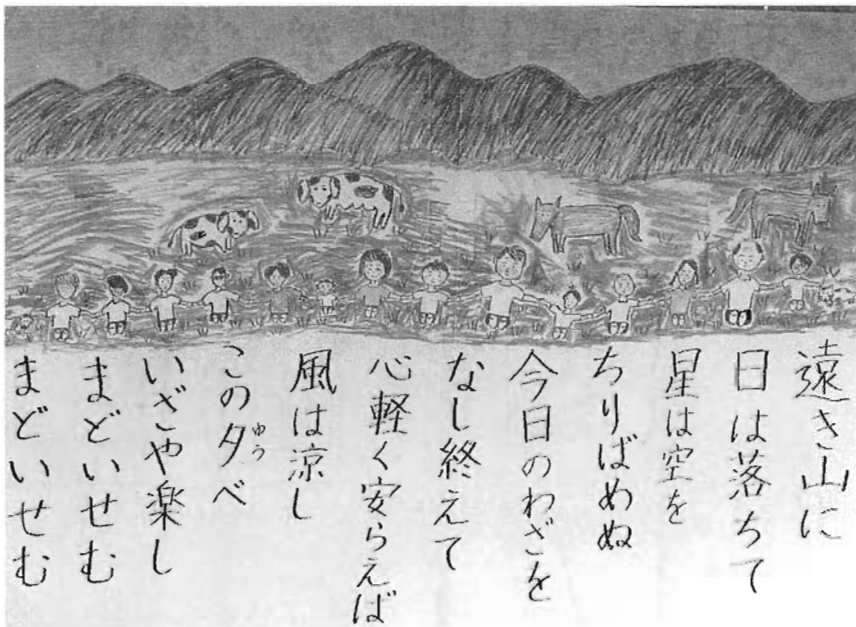 遠き山に
日は落ちて
星は空を
ちりばめぬ
今日のわざを
なし終えて
心軽く安らえば
風は涼し
この夕べ
ゆう
いざや楽し
まどいせむ
まどいせむ